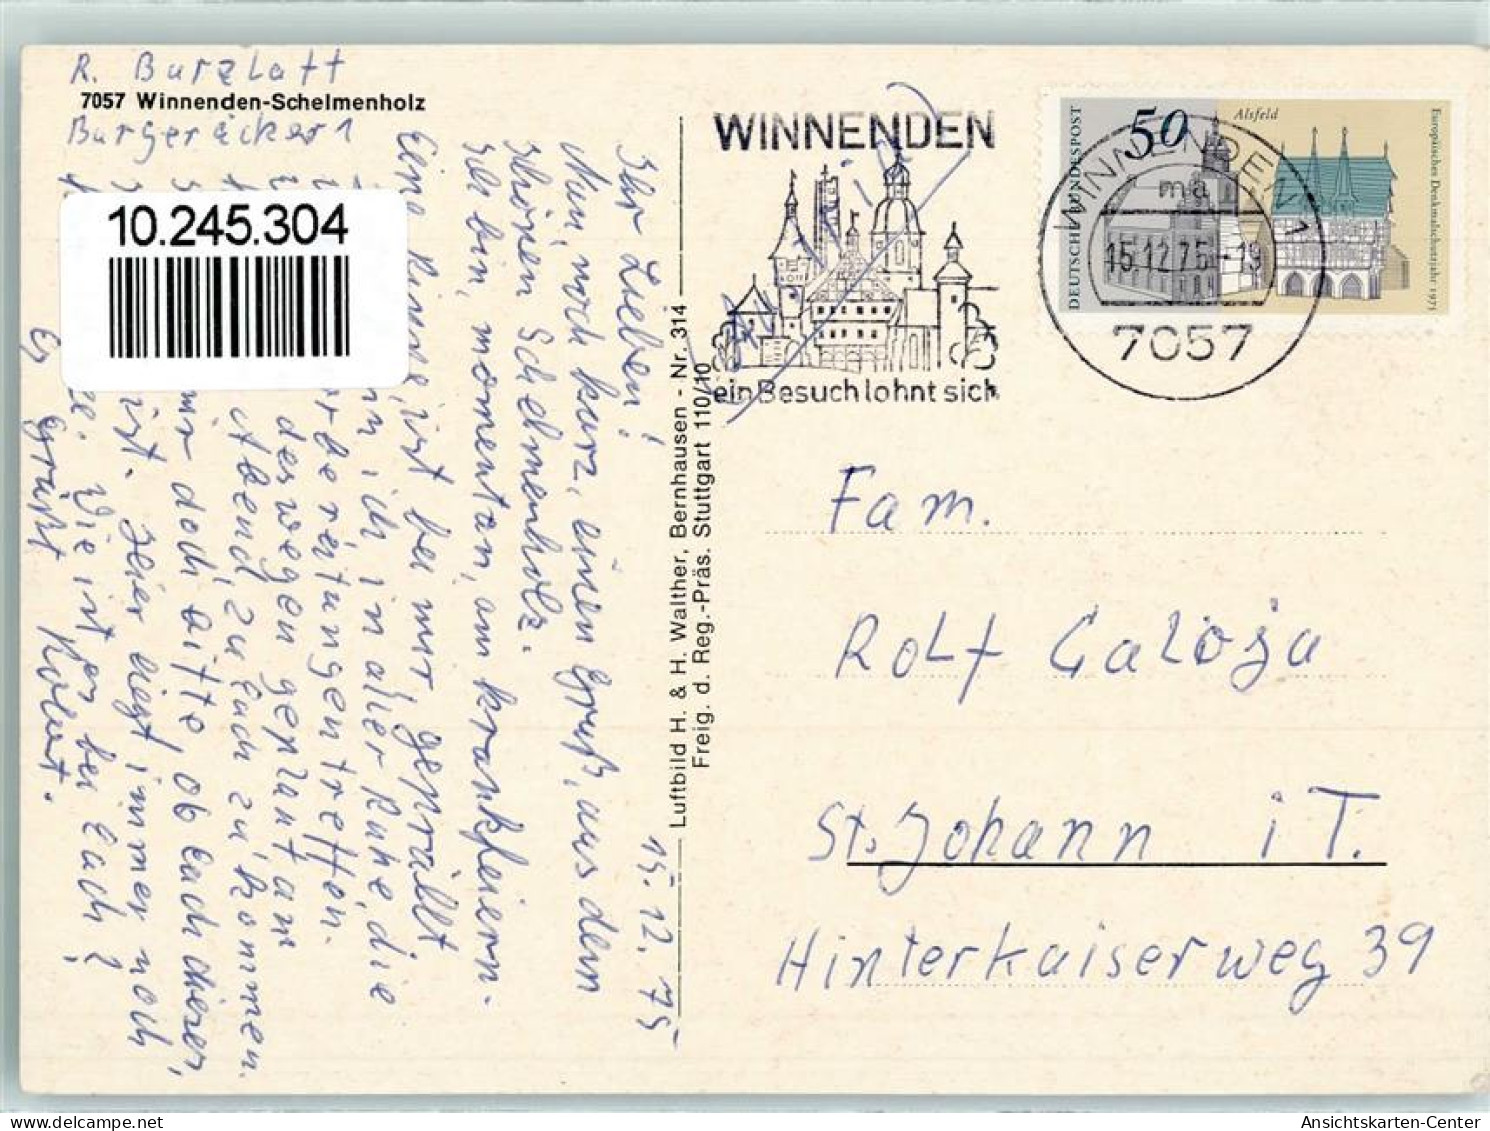 R. Burzlatt
7057 Winnenden-Schelmenholz
Burgeräcker 1
10.245.304
15.12.75
Ihr Lieben!
Nun, noch kurz, einen Gruß, aus dem
schönen Schelmenholz.
Ich bin, momentan, am krankfeiern.
Eine Rinne, ist bei mir, geprällt
ich, in aller Ruhe, die
rbereitungen treffen.
deswegen geplant am
Abend, zu Euch zu kommen.
mir doch bitte, ob Euch dieser,
ist. Hier liegt immer noch
Wie ist es bei Euch?
Es grüßt Robert.
Luftbild H. & H. Walther, Bernhausen - Nr. 314
Freig. d. Reg.-Präs. Stuttgart 110/10
WINNENDEN
ein Besuch lohnt sich
DEUTSCHE BUNDESPOST
50
Alsfeld
Europäisches Denkmalschutzjahr 1975
WINNENDEN 1
ma
15.12.75-19
7057
Fam.
Rolf Galoja
St. Johann i T.
Hinterkaiserweg 39
Ansichtskarten-Center